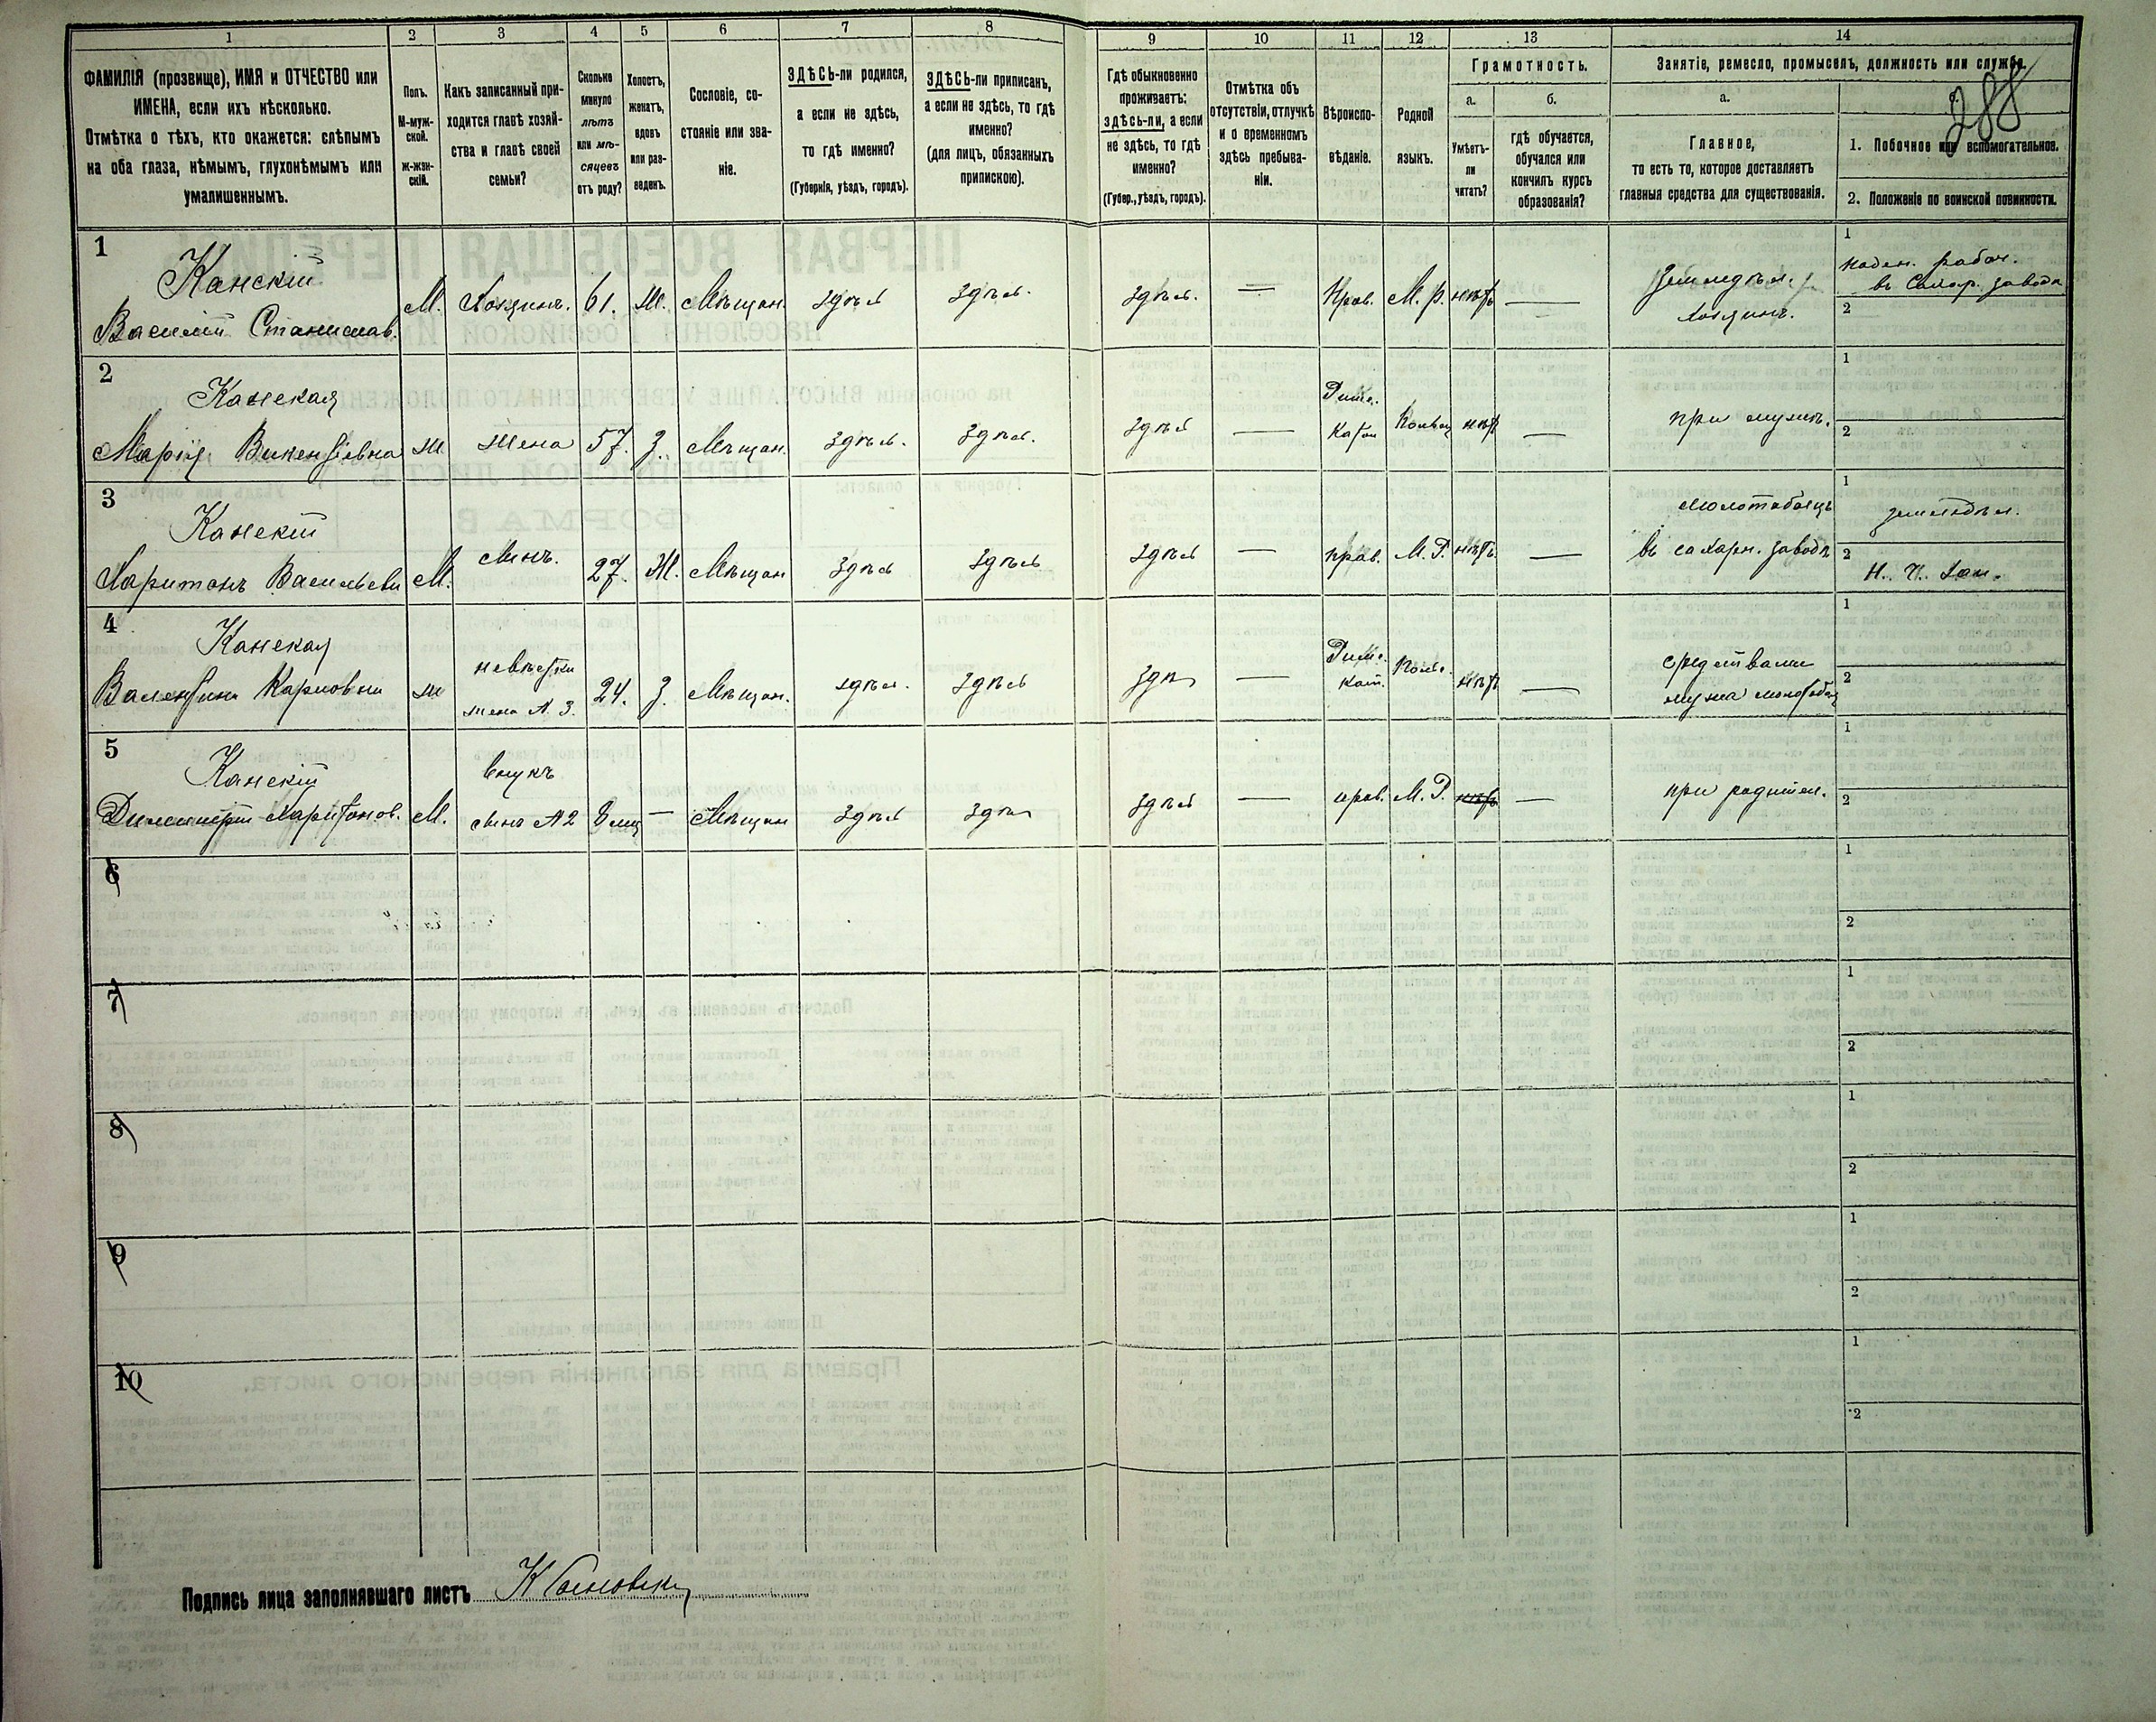 1 2 3 4 5 6 7 8 9 10 11 12 13 14
ФАМИЛІЯ (прозвище), ИМЯ и ОТЧЕСТВО или
ИМЕНА, если ихъ нѣсколько.
Отмѣтка о тѣхъ, кто окажется: слѣпымъ
на оба глаза, нѣмымъ, глухонѣмымъ или
умалишеннымъ.
Полъ.
М-муж-
ской.
ж-жен-
скій.
Какъ записанный при-
ходится главѣ хозяй-
ства и главѣ своей
семьи?
Сколько
минуло
лѣтъ
или мѣ-
сяцевъ
отъ роду?
Холостъ,
женатъ,
вдовъ
или раз-
веденъ.
Сословіе, со-
стояніе или зва-
ніе.
ЗДѢСЬ-ли родился,
а если не здѣсь,
то гдѣ именно?
(Губернія, уѣздъ, городъ).
ЗДѢСЬ-ли приписанъ,
а если не здѣсь, то гдѣ
именно?
(для лицъ, обязанныхъ
припискою).
Гдѣ обыкновенно
проживаетъ:
здѣсь-ли, а если
не здѣсь, то гдѣ
именно?
(Губер., уѣздъ, городъ).
Отмѣтка объ
отсутствіи, отлучкѣ
и о временномъ
здѣсь пребыва-
ніи.
Вѣроиспо-
вѣданіе.
Родной
языкъ.
Грамотность.
а.
Умѣетъ-
ли
читать?
б.
гдѣ обучается,
обучался или
кончилъ курсъ
образованія?
Занятіе, ремесло, промыселъ, должность или служба.
а.
Главное,
то есть то, которое доставляетъ
главныя средства для существованія.
288
1. Побочное или вспомогательное.
2. Положеніе по воинской повинности.
1
Канскій
Василій Станислав.
М. Хозяинъ. 61. Ж. Мѣщан. здѣсь здѣсь. здѣсь. — Прав. М. р. нѣтъ —
Земледѣл.
хозяинъ.
1 поден. рабоч.
въ Сахар. заводѣ
2
2
Канская
Марія Викентіевна
ж жена 57. З. Мѣщан. здѣсь. здѣсь. здѣсь —
Римс.
Катол
нѣтъ —
при мужѣ.
1
2
3
Канскій
Харитонъ Васильеви
М. сынъ. 27. Ж. Мѣщан здѣсь здѣсь здѣсь — прав. М. Р. нѣтъ. —
молотобоецъ
въ сахарн. заводѣ
1 земледѣл.
2
4
Канская
Валентина Карповна
ж
невѣстка
жена № 3.
24. З. Мѣщан. здѣсь. здѣсь здѣ —
Римс.
кат.
Польс. нѣтъ —
средствами
мужа молотобой
1
2
5
Канскій
Дмитрій Харитонов.
М.
внукъ
сынъ №2
8 мц — Мѣщан здѣсь здѣ здѣсь — прав. М. Р. нѣтъ —
при родител.
1
2
6
1
2
7
1
2
8
1
2
9
1
2
10
1
2
Подпись лица заполнявшаго листъ